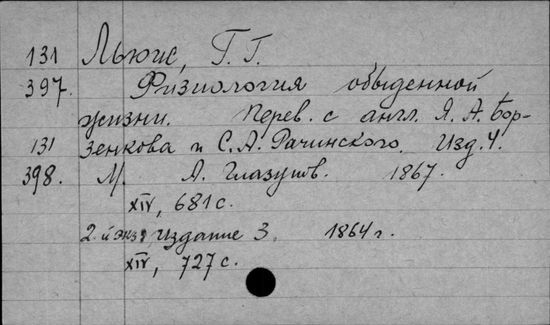 131 Льюис, Г. Г.
397. Физиология обыденной
жизни. Перев. с англ. Я. А. Бор-
131 зенкова и С. А. Рачинского. Изд. 4.
398. М. А. Глазунов. 1867.
XIV, 681 с.
2-й экз, издание 3, 1864 г.
XIV, 727 с.